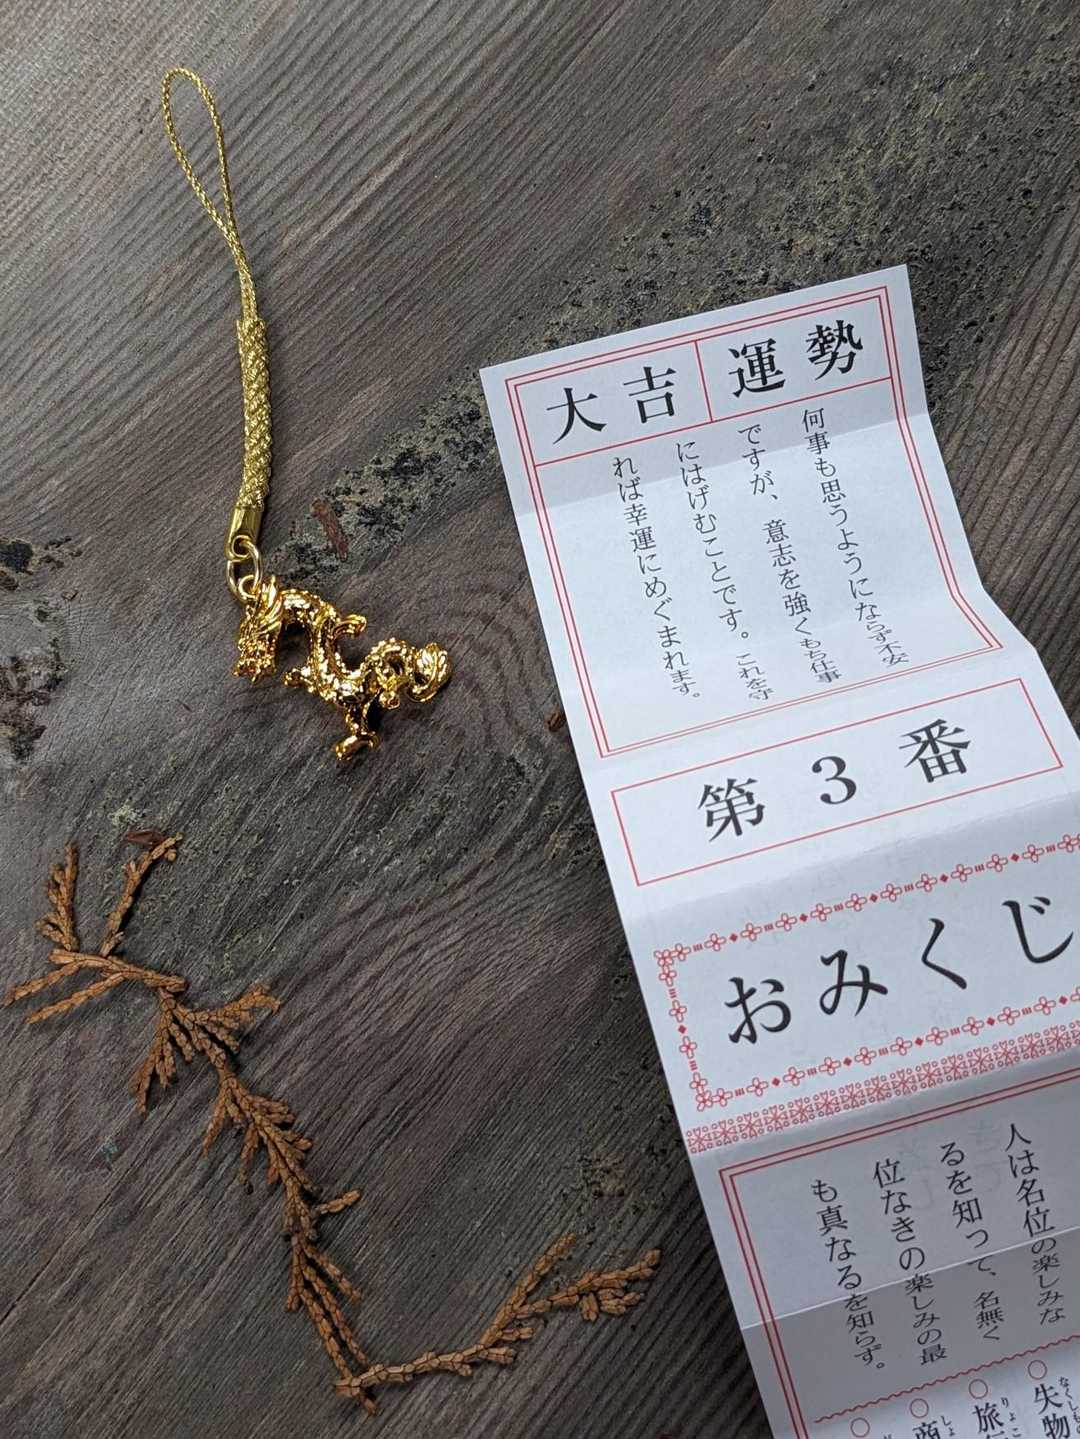 運勢
大吉
何事も思うようにならず不安
ですが、意志を強くもち仕事
にはげむことです。これを守
れば幸運にめぐまれます。
第3番
おみくじ
人は名位の楽しみな
るを知って、名無く
位なきの楽しみの最
も真なるを知らず。
○失物
○旅
○商